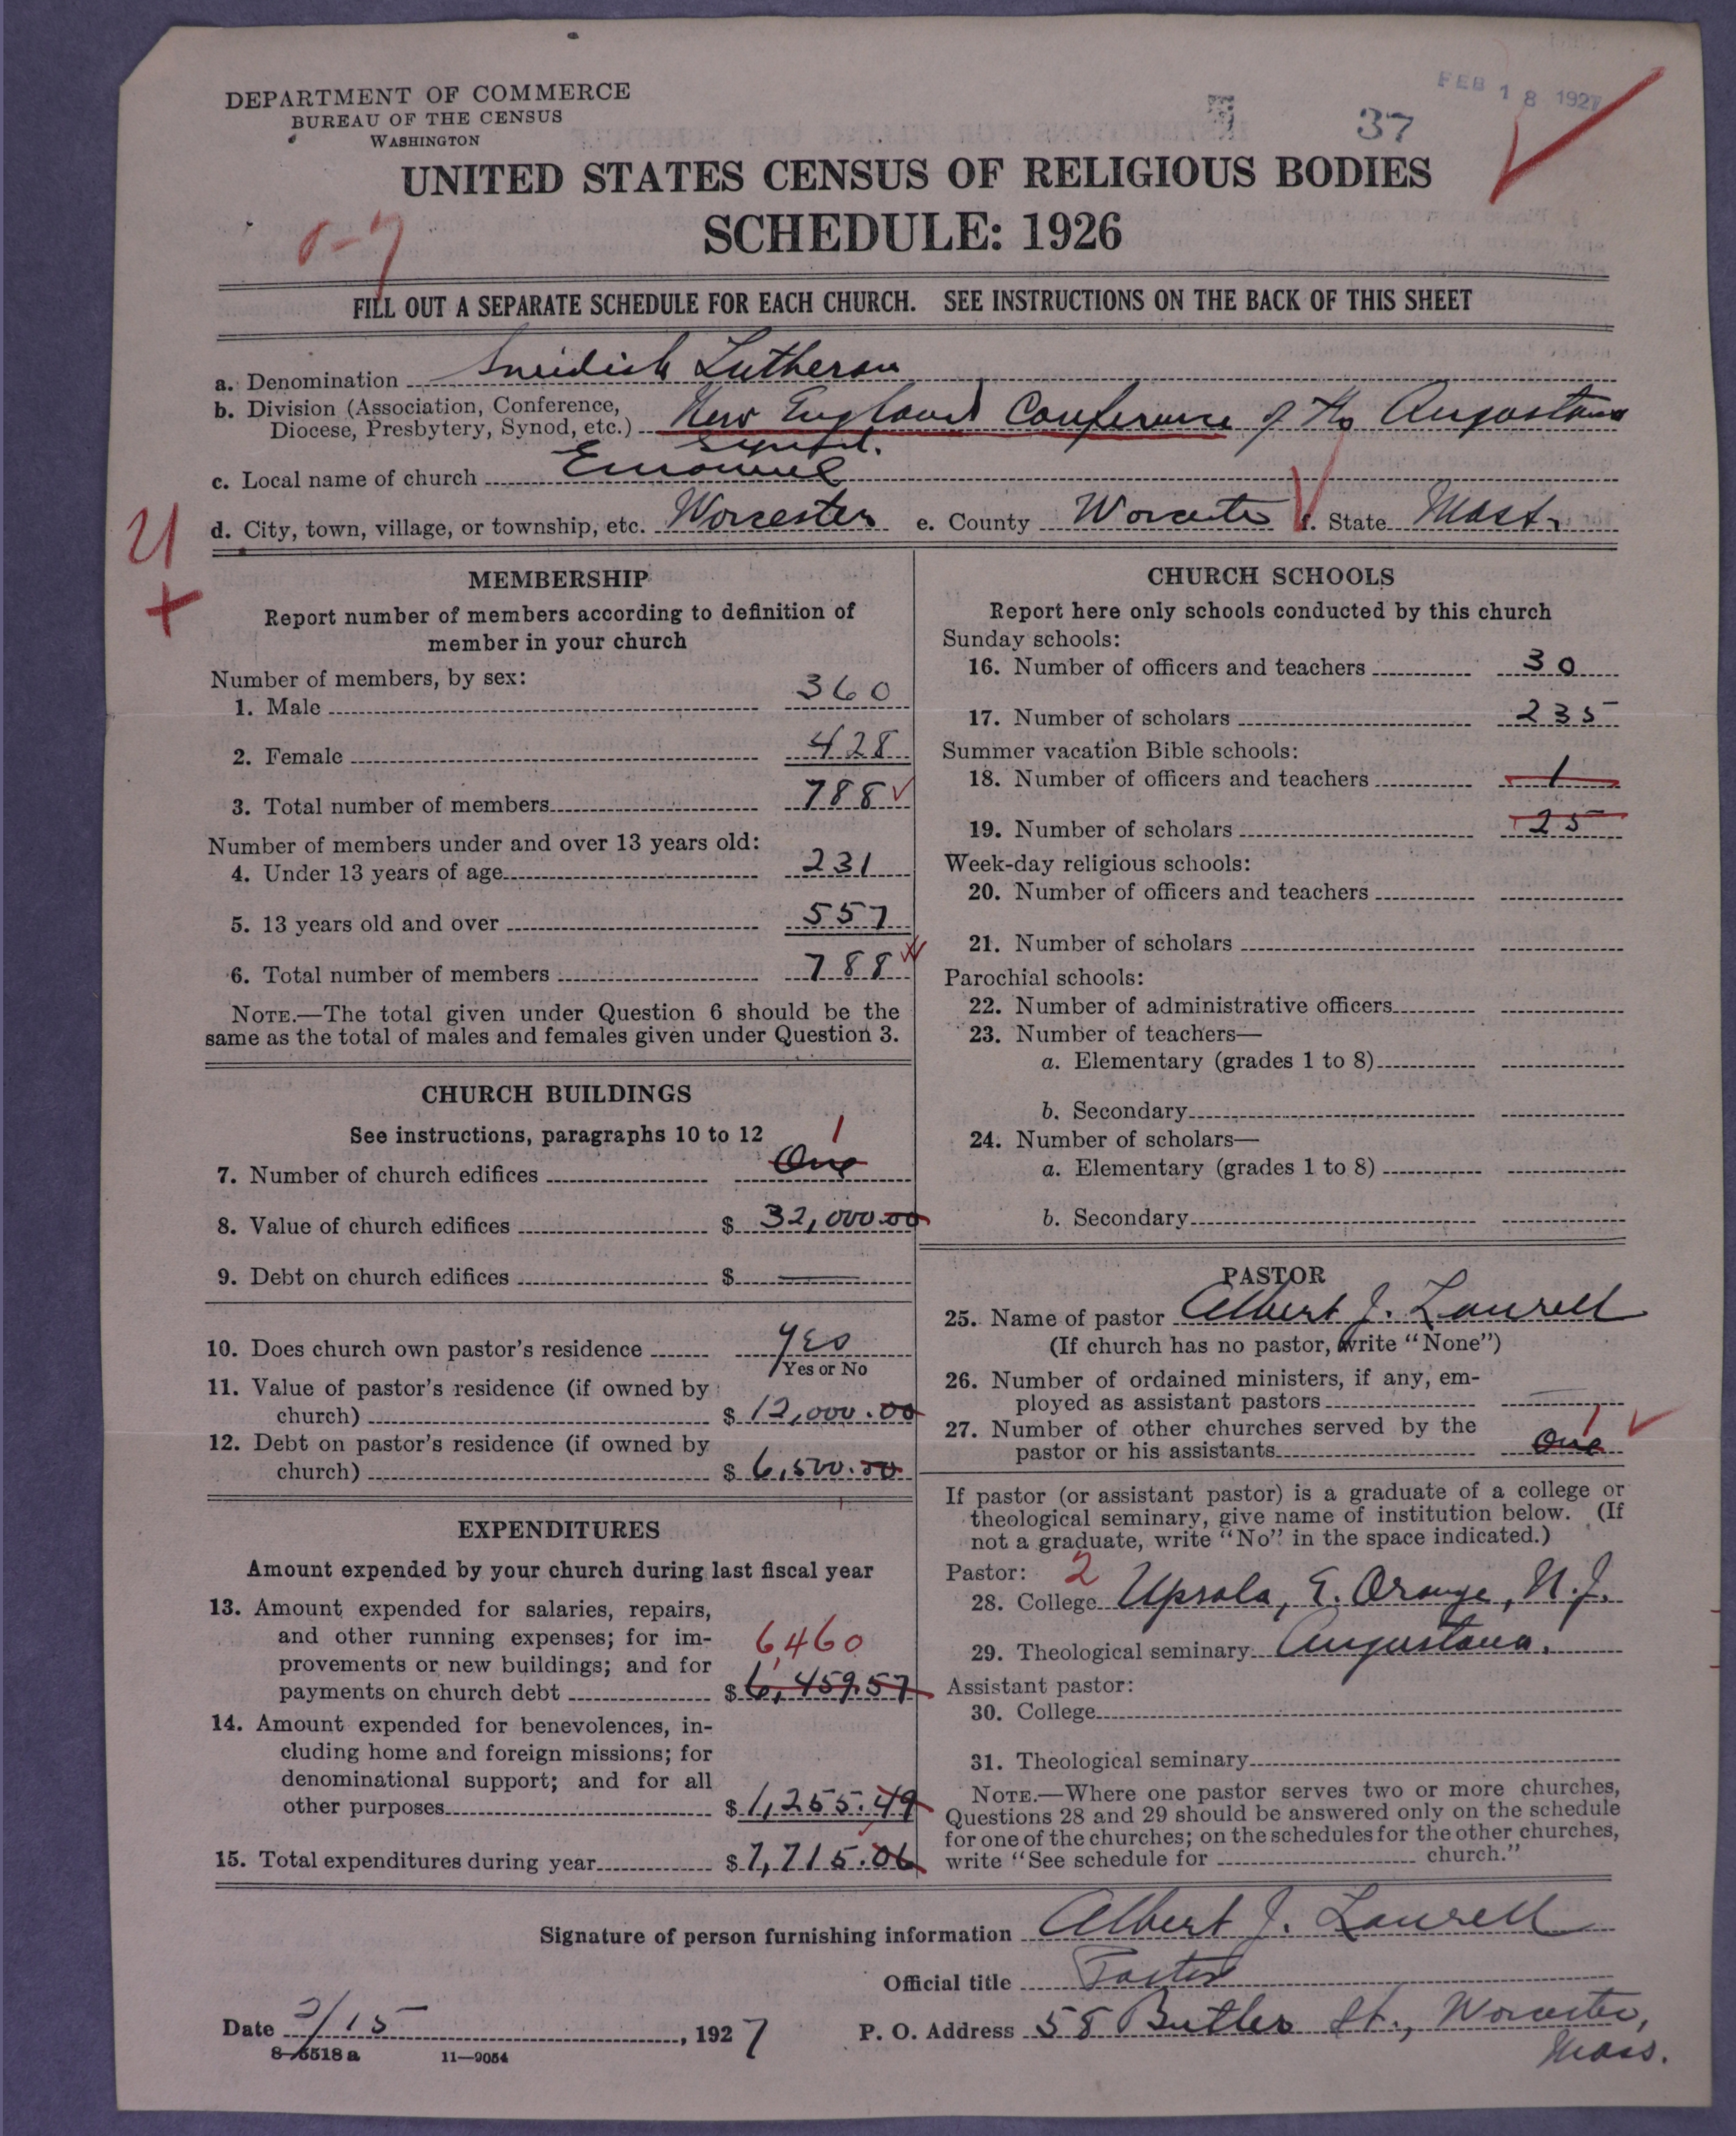 FEB 18 1927
37
DEPARTMENT OF COMMERCE
BUREAU OF THE CENSUS
WASHINGTON
UNITED STATES CENSUS OF RELIGIOUS BODIES
SCHEDULE: 1926
FILL OUT A SEPARATE SCHEDULE FOR EACH CHURCH. SEE INSTRUCTIONS ON THE BACK OF THIS SHEET
a. Denomination Swedish Lutheran
b. Division (Association, Conference,
Diocese, Presbytery, Synod, etc.) New England Conference of the Augustana
Synod.
c. Local name of church Emanuel
d. City, town, village, or township, etc. Worcester e. County Worcester f. State Mass.
MEMBERSHIP
Report number of members according to definition of
member in your church
Number of members, by sex:
1. Male 360
2. Female 428
3. Total number of members 788
Number of members under and over 13 years old:
4. Under 13 years of age 231
5. 13 years old and over 557
6. Total number of members 788
NOTE.—The total given under Question 6 should be the
same as the total of males and females given under Question 3.
CHURCH BUILDINGS
See instructions, paragraphs 10 to 12
1
7. Number of church edifices One
8. Value of church edifices $ 32,000.00
9. Debt on church edifices $ —
10. Does church own pastor's residence Yes
Yes or No
11. Value of pastor's residence (if owned by
church) $ 12,000.00
12. Debt on pastor's residence (if owned by
church) $ 6,500.00
EXPENDITURES
Amount expended by your church during last fiscal year
13. Amount expended for salaries, repairs,
and other running expenses; for im-
6,460
provements or new buildings; and for
payments on church debt $ 6,459.57
14. Amount expended for benevolences, in-
cluding home and foreign missions; for
denominational support; and for all
other purposes $ 1,255.49
15. Total expenditures during year $ 7,715.06
CHURCH SCHOOLS
Report here only schools conducted by this church
Sunday schools:
16. Number of officers and teachers 30
17. Number of scholars 235
Summer vacation Bible schools:
18. Number of officers and teachers 1
19. Number of scholars 25
Week-day religious schools:
20. Number of officers and teachers
21. Number of scholars
Parochial schools:
22. Number of administrative officers
23. Number of teachers—
a. Elementary (grades 1 to 8)
b. Secondary
24. Number of scholars—
a. Elementary (grades 1 to 8)
b. Secondary
PASTOR
25. Name of pastor Albert J. Laurell
(If church has no pastor, write "None")
26. Number of ordained ministers, if any, em-
ployed as assistant pastors —
27. Number of other churches served by the
1
pastor or his assistants One
If pastor (or assistant pastor) is a graduate of a college or
theological seminary, give name of institution below. (If
not a graduate, write "No" in the space indicated.)
Pastor: 2
28. College Upsala, E. Orange, N.J.
29. Theological seminary Augustana.
Assistant pastor:
30. College
31. Theological seminary
NOTE.—Where one pastor serves two or more churches,
Questions 28 and 29 should be answered only on the schedule
for one of the churches; on the schedules for the other churches,
write "See schedule for church."
Signature of person furnishing information Albert J. Laurell
Official title Pastor
Date 2/15, 1927
P. O. Address 58 Butler St., Worcester,
Mass.
8-5518 a 11-9054